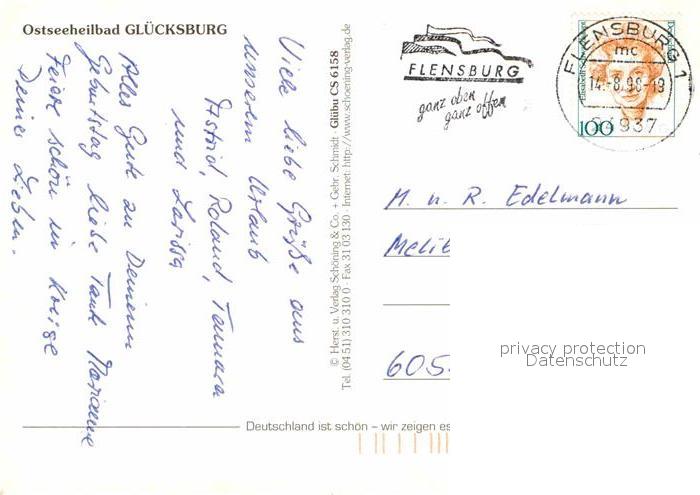 Ostseeheilbad GLÜCKSBURG
Viele liebe Grüße aus
unserem Urlaub
Astrid, Roland, Tamara
und Larissa
Alles Gute zu Deinem
Geburtstag liebe Tante Marianne
Feiere schön im Kreise
Deiner Lieben.
© Herst. u. Verlag Schöning & Co. + Gebr. Schmidt
Tel. (04 51) 310 310 0 · Fax 31 03 130 · Internet: http://www.schoening-verlag.de
Glübu CS 6158
FLENSBURG
ganz oben
ganz offen
FLENSBURG 1
mc
14.-8.98-19
24937
100
M. u. R. Edelmann
Melit
605
privacy protection
Datenschutz
Deutschland ist schön – wir zeigen es